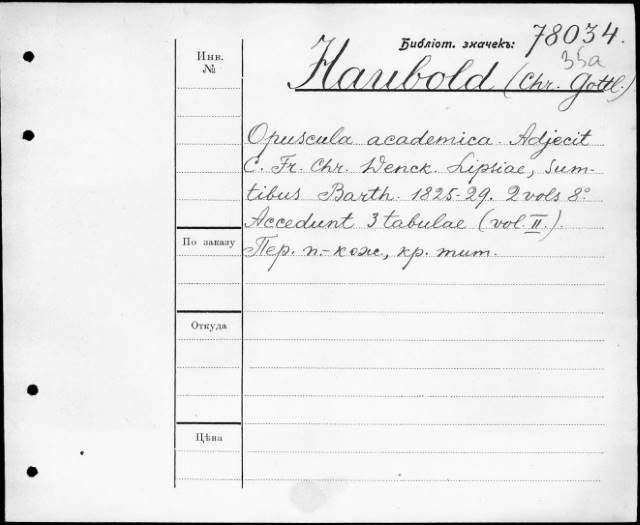 Библіот. значекъ: 78034.
35a
Инв.
№
Haubold (Chr. Gottl.)
Opuscula academica. Adjecit
C. Fr. Chr. Wenck. Lipsiae, sum-
tibus Barth. 1825-29. 2 vols 8°
Accedunt 3 tabulae (vol. II.).
По заказу
Пер. п.-кож., кр. тит.
Откуда
Цѣна